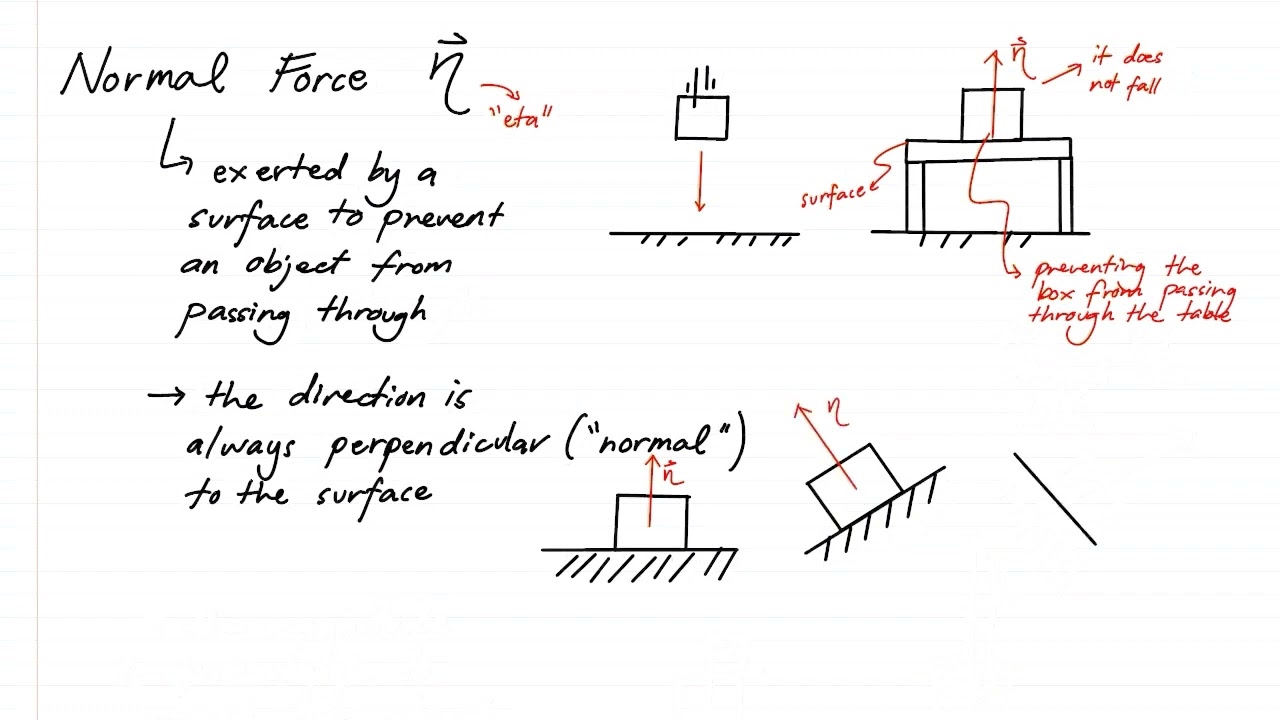 Normal Force η⃗
"eta"
exerted by a
surface to prevent
an object from
passing through
→ the direction is
always perpendicular ("normal")
to the surface
η⃗
it does
not fall
surface
preventing the
box from passing
through the table
η⃗
η